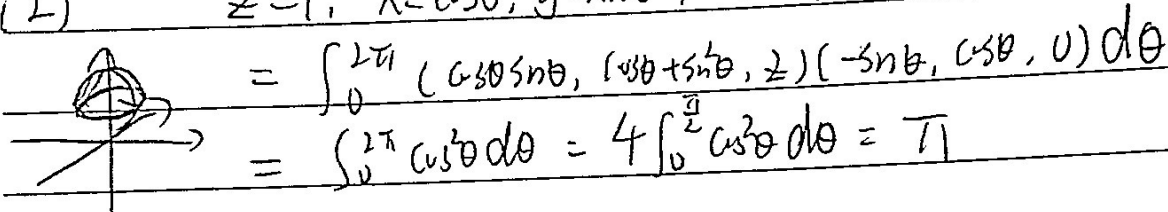 (2) z=1, x=cosθ, y=sinθ
= ∫₀^{2π} (cosθsinθ, cosθ+sin²θ, z)(-sinθ, cosθ, 0)dθ
= ∫₀^{2π} cos²θdθ = 4∫₀^{π/2} cos²θdθ = π